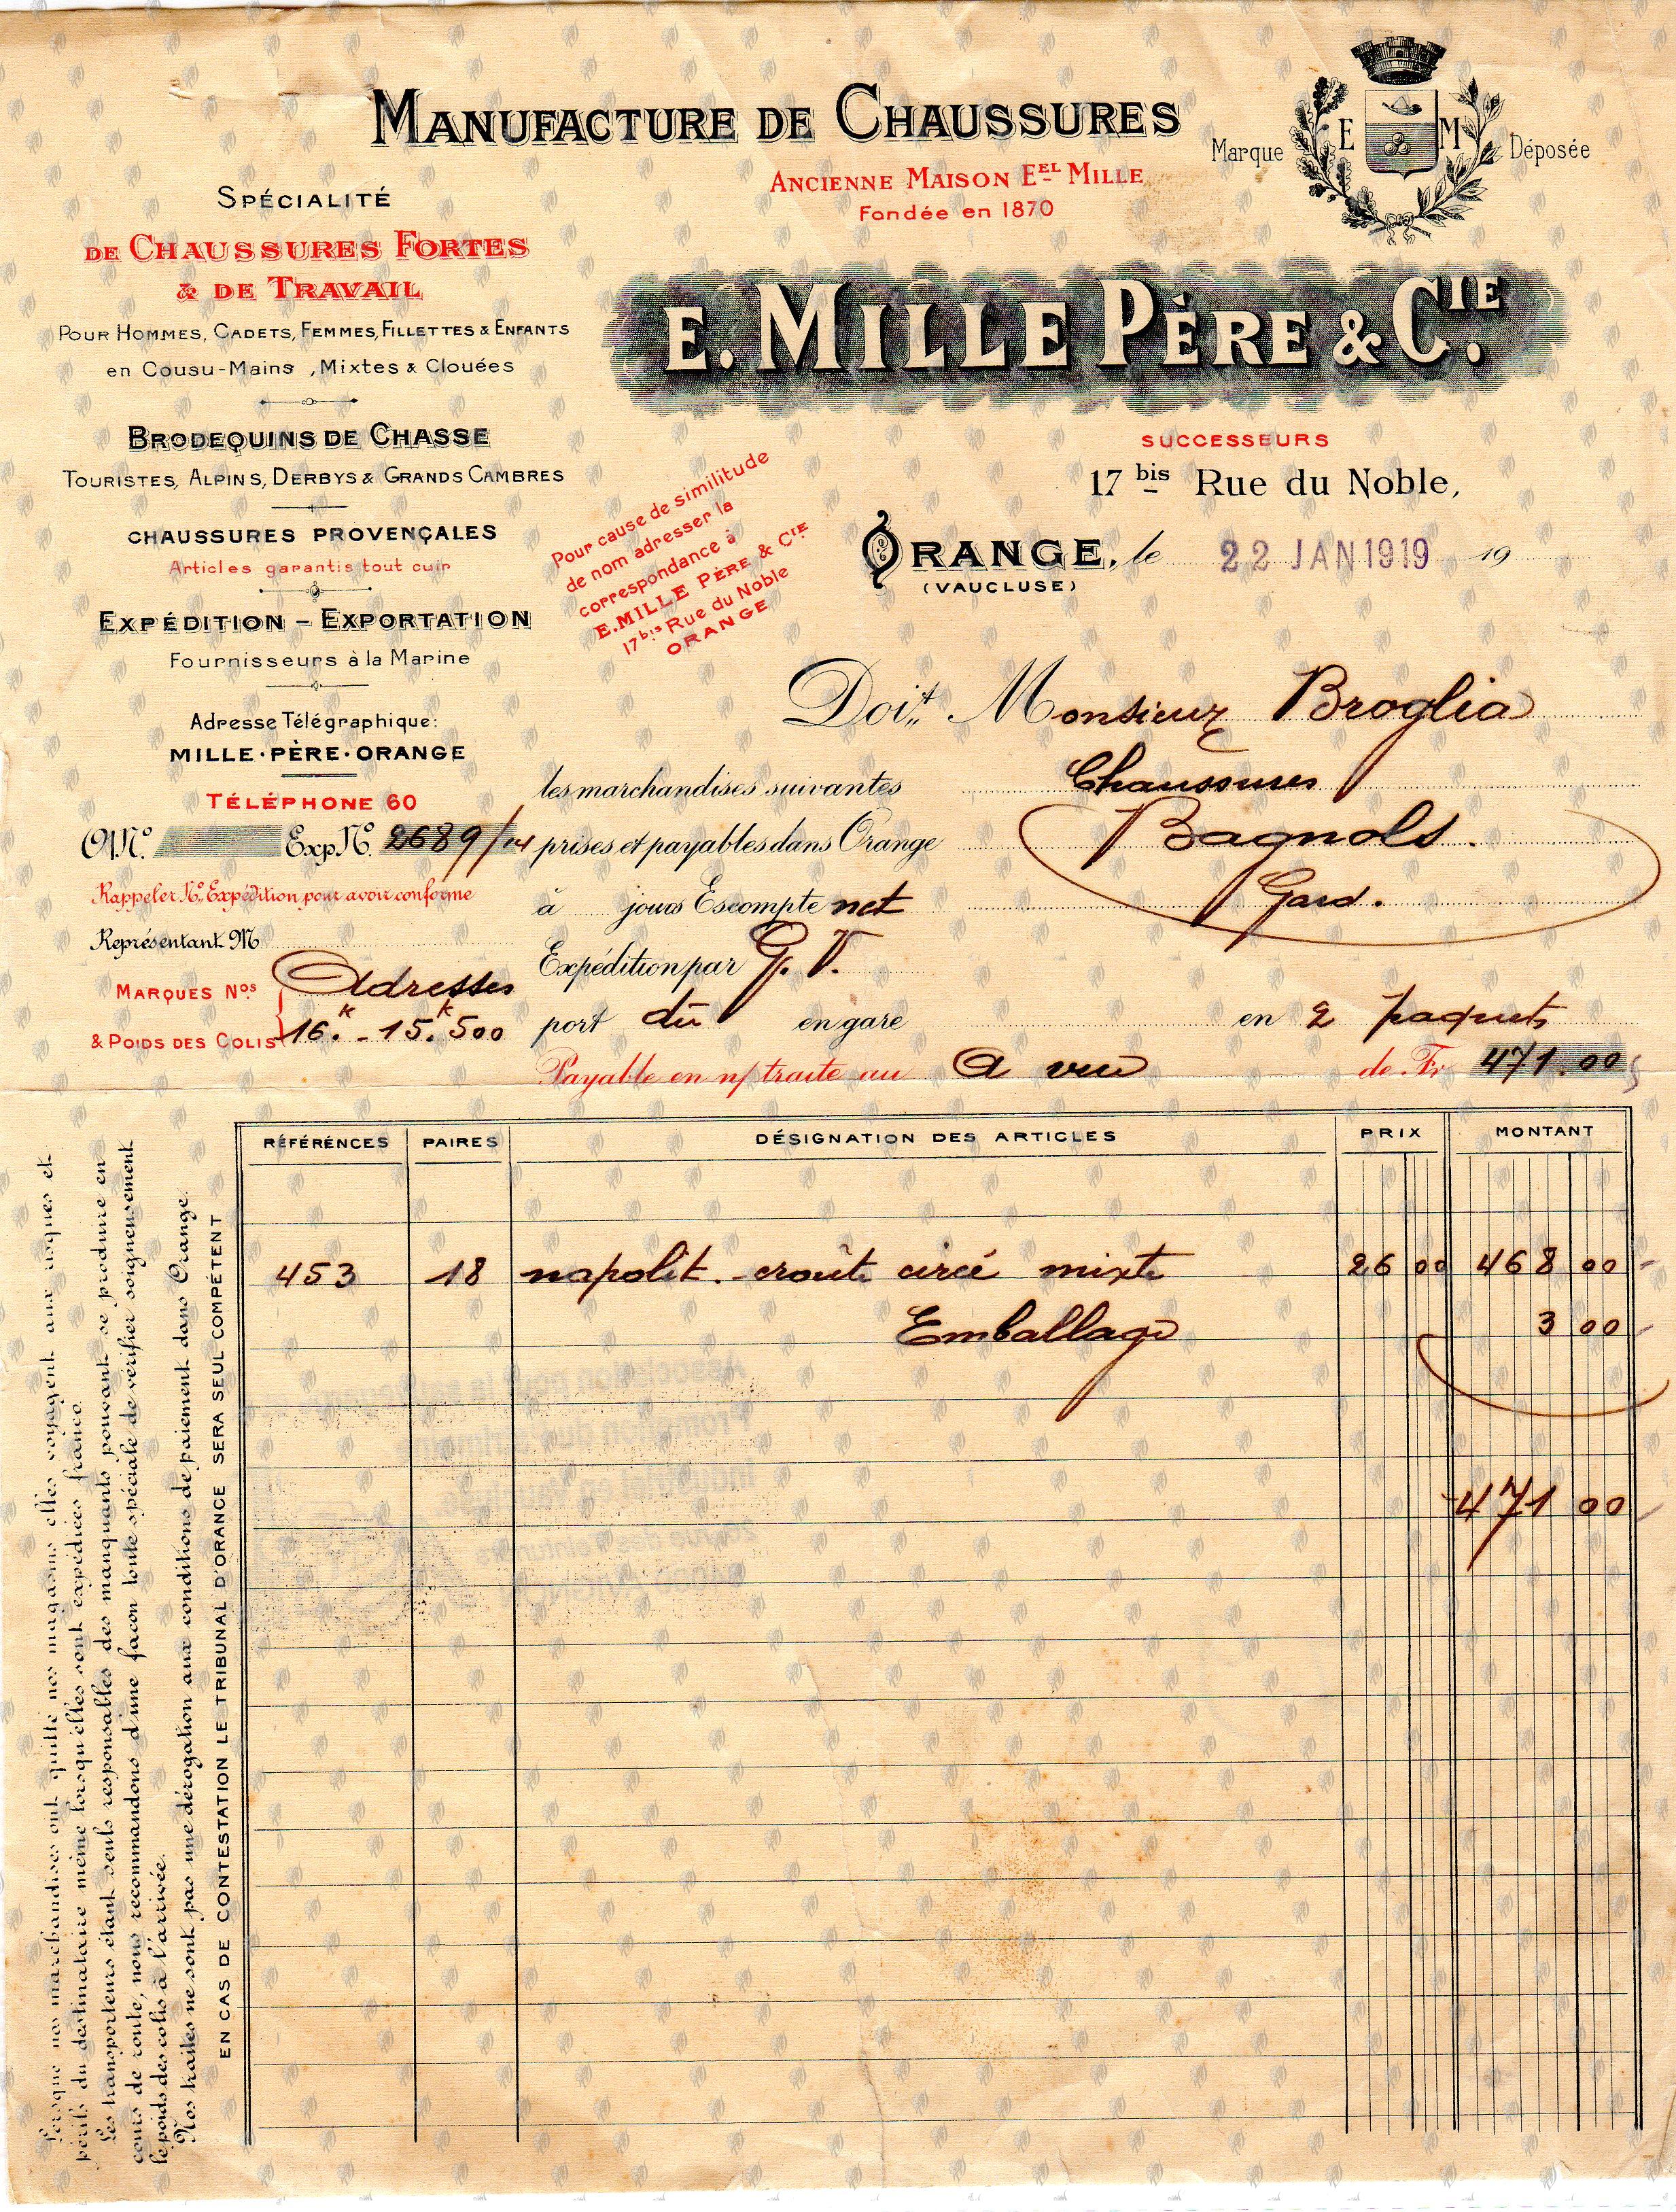 MANUFACTURE DE CHAUSSURES
ANCIENNE MAISON EEL MILLE
Fondée en 1870
Marque E M Déposée
SPÉCIALITÉ
DE CHAUSSURES FORTES
& DE TRAVAIL
POUR HOMMES, CADETS, FEMMES, FILLETTES & ENFANTS
en Cousu-Mains, Mixtes & Clouées
BRODEQUINS DE CHASSE
TOURISTES, ALPINS, DERBYS & GRANDS CAMBRES
CHAUSSURES PROVENÇALES
Articles garantis tout cuir
EXPÉDITION - EXPORTATION
Fournisseurs à la Marine
Adresse Télégraphique:
MILLE·PÈRE·ORANGE
TÉLÉPHONE 60
E. MILLE PÉRE & CIE.
SUCCESSEURS
17 bis Rue du Noble,
ORANGE, le 22 JAN 1919 19
(VAUCLUSE)
Pour cause de similitude
de nom adresser la
correspondance à
E. MILLE PÈRE & CIE
17 bis Rue du Noble
ORANGE
Doit Monsieur Broglia
Chaussures
Bagnols.
Gard.
Exp. No. 2689/14
Rappeler No Expédition pour avoir conforme
Représentant M
MARQUES Nos Adresses
& POIDS DES COLIS 16.k - 15.k 500
les marchandises suivantes
prises et payables dans Orange
à jours Escompte net
Expédition par G. V.
port dû en gare en 2 paquets
Payable en n/ traite au A vue de Fr 471.00
RÉFÉRENCES PAIRES DÉSIGNATION DES ARTICLES PRIX MONTANT
453 18 napolit. - croûte cirée mixte 26 00 468 00
Emballage 3 00
471 00
Lorsque nos marchandises ont quitté nos magasins elles voyagent aux risques et
périls du destinataire même lorsqu'elles sont expédiées franco.
Les transporteurs étant seuls responsables des manquants pouvant se produire en
cours de route, nous recommandons d'une façon toute spéciale de vérifier soigneusement
le poids des colis à l'arrivée.
Nos traites ne sont pas une dérogation aux conditions de paiement dans Orange.
EN CAS DE CONTESTATION LE TRIBUNAL D'ORANGE SERA SEUL COMPÉTENT